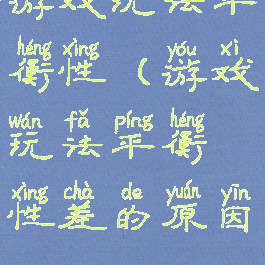 游戏玩法平
héng xìng yóu xì
衡性（游戏
wán fǎ píng héng
玩法平衡
xìng chà de yuán yīn
性差的原因